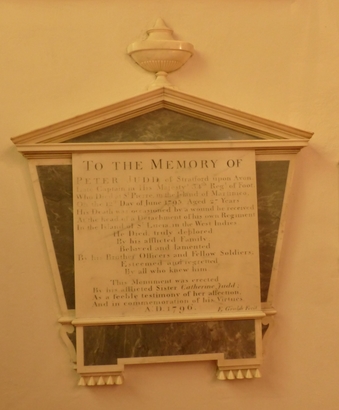 TO THE MEMORY OF
PETER JUDD of Stratford upon Avon
Late Captain in His Majesty's Reg.t of Foot
Who Died at Port in the Island of
Day of June 1795 Aged Years
His Death was occasioned by a wound he received
At the head of a detachment of his own Regiment
In the Island of S.t Lucia in the West Indies
He Died truly deplored
By his afflicted Family
Beloved and lamented
By his Brother Officers and Fellow Soldiers,
Esteemed and regretted
By all who knew him
This Monument was erected
By his afflicted Sister Catherine Judd;
As a feeble testimony of her affection,
And in commemoration of his Virtues
A.D. 1796